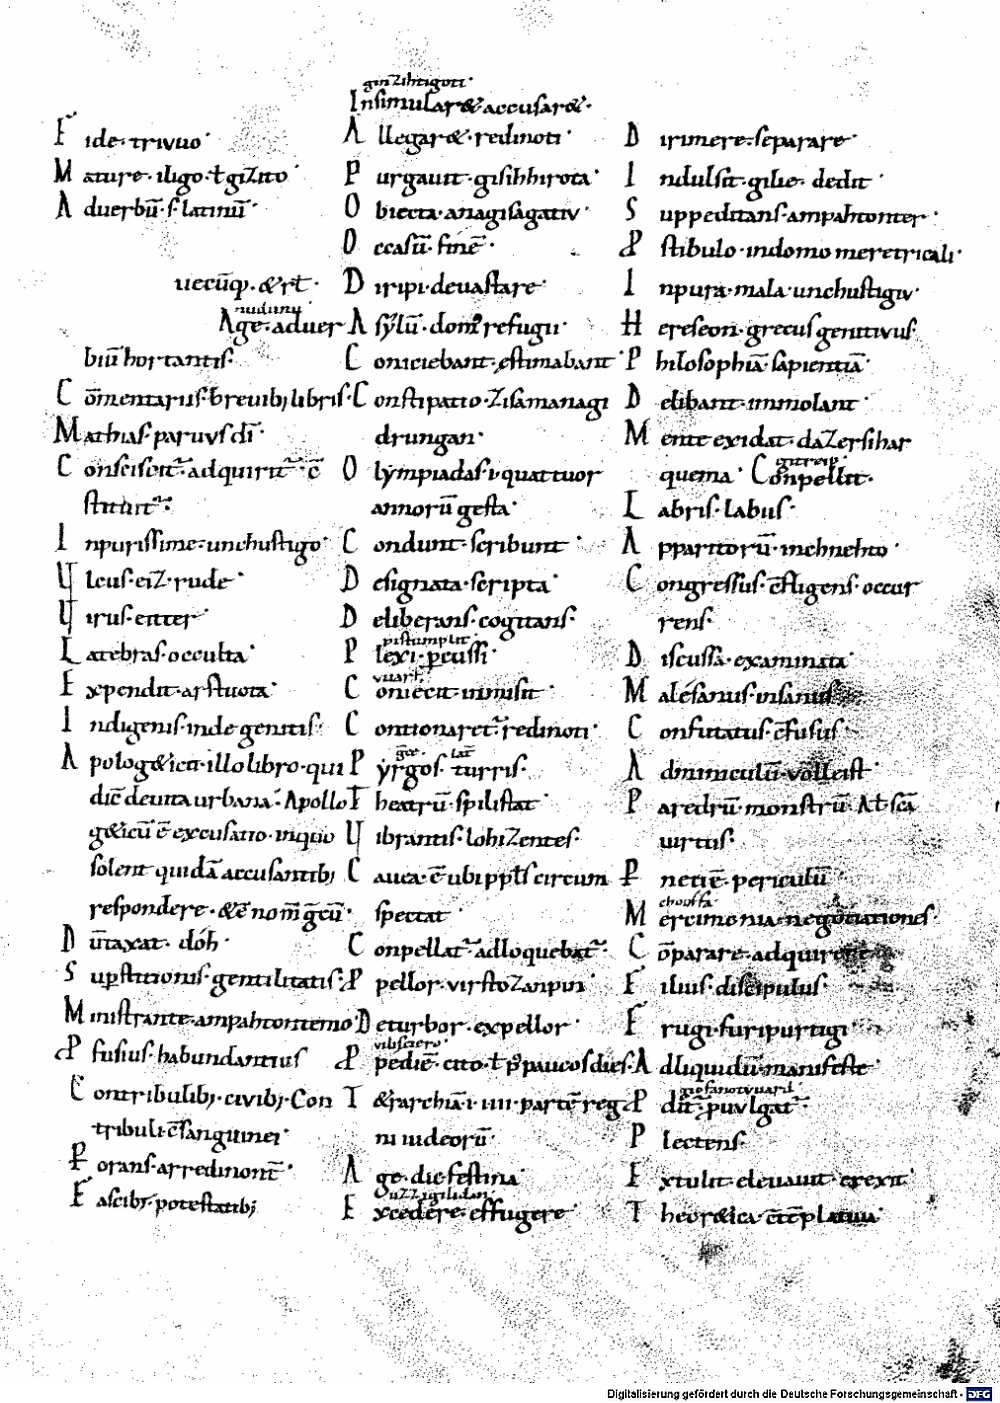 Fide· triuuo·
Mature· iligo· ł gizito·
Aduerbiū· s· latinū·
uecūq;· & rł·
nudunu
Age· aduer
biū hortantis·
Cōmentariis· breuib; libris·
Mathias· paruus dī·
Consciscit᷑· adquirit᷑· ē
stituit᷑·
Inpurissime· unchustigo·
Uleus· eiz· rude·
Uirus· eitter·
Latebras· occulta·
Expendit· arstuota·
Indigenis· inde genitis·
Apolog&ica· illo libro· qui
dicē deuita urbana· Apollo
g&icū ē excusatio· in quo
solent quidā accusantib;
respondere· & ē nom̄ grecū·
Dūtaxat· doh·
Supstitionis· gentilitatis·
Ministrante· ampahtontemo·
Effusius· habundantius
Contribulib;· ciuib;· Con
tribuli· ēsanguinei·
Porans· arredinont̄·
Fascib;· potestatib;
ginzihtigoti·
Insimular&· accusar&·
Allegar&· redinoti·
Purgauit· gisihhirota·
Obiecta· anagisagativ·
Occasū· finē·
Diripi· deuastare·
Asylū· dom᷒ refugii·
Coniciebant· estimabant·
Constipatio· zisamanagi
drungan·
Olympiadas· i· quattuor
annorū gesta·
Condunt· scribunt·
Designata· scripta·
Deliberans· cogitans·
pistumplit·
Plexi· pcussi·
vuarf·
Coniecit· inmisit·
Contionaret᷑· redinoti·
grē· lat̄
Pyrgos· turris·
Theatrū· spilistat·
Uibrantis· lohizentes·
Cauea· ē ubi ppłs circum
spectat·
Conpellat᷑· adloquebat᷑·
Epellor· virstozanpin·
Deturbor· expellor·
vibsciero·
Expediē· cito· ł p paucos dies·
T&rarchia· i· IIII· partē reg
ni iudeorū·
Age· die festina·
vzzigilidan·
Excedere· effugere·
Dirimere· separare·
Indulsit· gilie· dedit·
Suppeditans· ampahtonter·
Ex stibulo· indomo meretricali·
Inpura· mala· unchustigiv·
Hereseon· grecus genitiuus·
Philosophiā· sapientiā·
Delibant· immolant·
Mente exidat· dazersihar
quema· Conpellit·
Labris· labus·
Apparitorū· inehnehto·
Congressus· cēfligens· occur
rens·
Discussa· examinata·
Malesanus· insanus·
Confutatus· ēfusus·
Adminiculū· volleist·
Paredrū· monstrū· Ał scā
uirtus·
Periculū·
chouffa·
Mercimonia· negotiationes·
Cōparare· adquirere·
Filius· discipulus·
Frugi· furipurtigi·
Adliquidū· manifeste·
giofanotvuard·
Edit᷑· puulgat᷑·
Plectens·
Extulit· eleuauit· erexit·
Theor&ica· ētēplatiua·